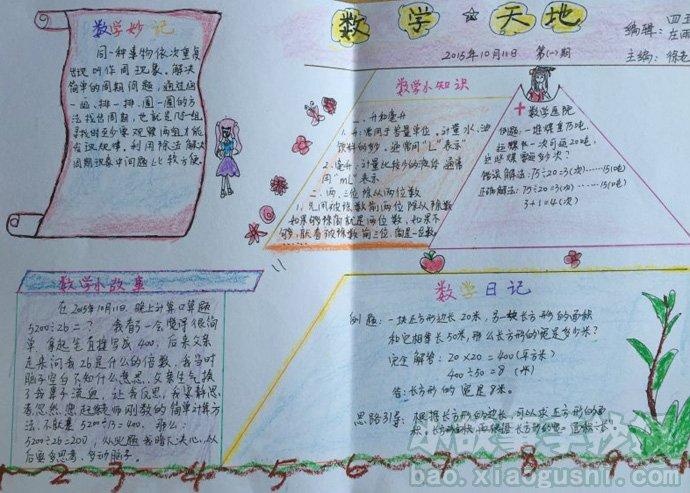 数学天地
编辑：四五
2015年10月11日 第(一)期
主编：
数学妙记
同一种事物依次重复
出现叫作周期现象。解决
简单的周期问题，通过画
一画、排一排、圈一圈的方
法找出周期，也就是几个一组
寻找时至少要观察两组才能
发现规律，利用除法解决
周期现象中问题比较方便。
数学小知识
一、升和毫升
1、升常用于容量单位，计量水、油、
饮料的多少，通常用"L"表示
2、毫升，计量比较少的液体，通常
用"mL"表示
二、两、三位除以两位数
1、先用被除数前两位除以除数
如果够除商就是两位数，如果不
够，就看被除数前三位，商是一位数。
数学医院
例题：一堆煤重75吨，
一次可运20吨，
错误解法：75÷20=3(次)……15(吨)
正确解法：75÷20=3(次)……15(吨)
3+1=4(次)
数学小故事
在2015年10月11日，晚上计算口算题
5200÷26=？我
单，拿起笔直接写成400，后来父亲
走来问我26是什么的倍数，我当时
脑子空白不知什么意思，父亲生气
了我鼻子流血，让我反思，我
法，不就是5200÷13=400，那么：
5200÷26=200，从此题我暗下决心，以
后要多思考，多动脑子。
数学日记
例题：一块正方形边长20米，另一块长方形的面积
和它相等长50米，那么长方形的宽是多少米？
完全解答：20×20=400(平方米)
400÷50=8(米)
答：长方形的宽是8米。
思路引导：根据正方形的边长可以求正方形的面
1 2 3 4 5 6 7 8 9 1
bao.xiaogushi.com